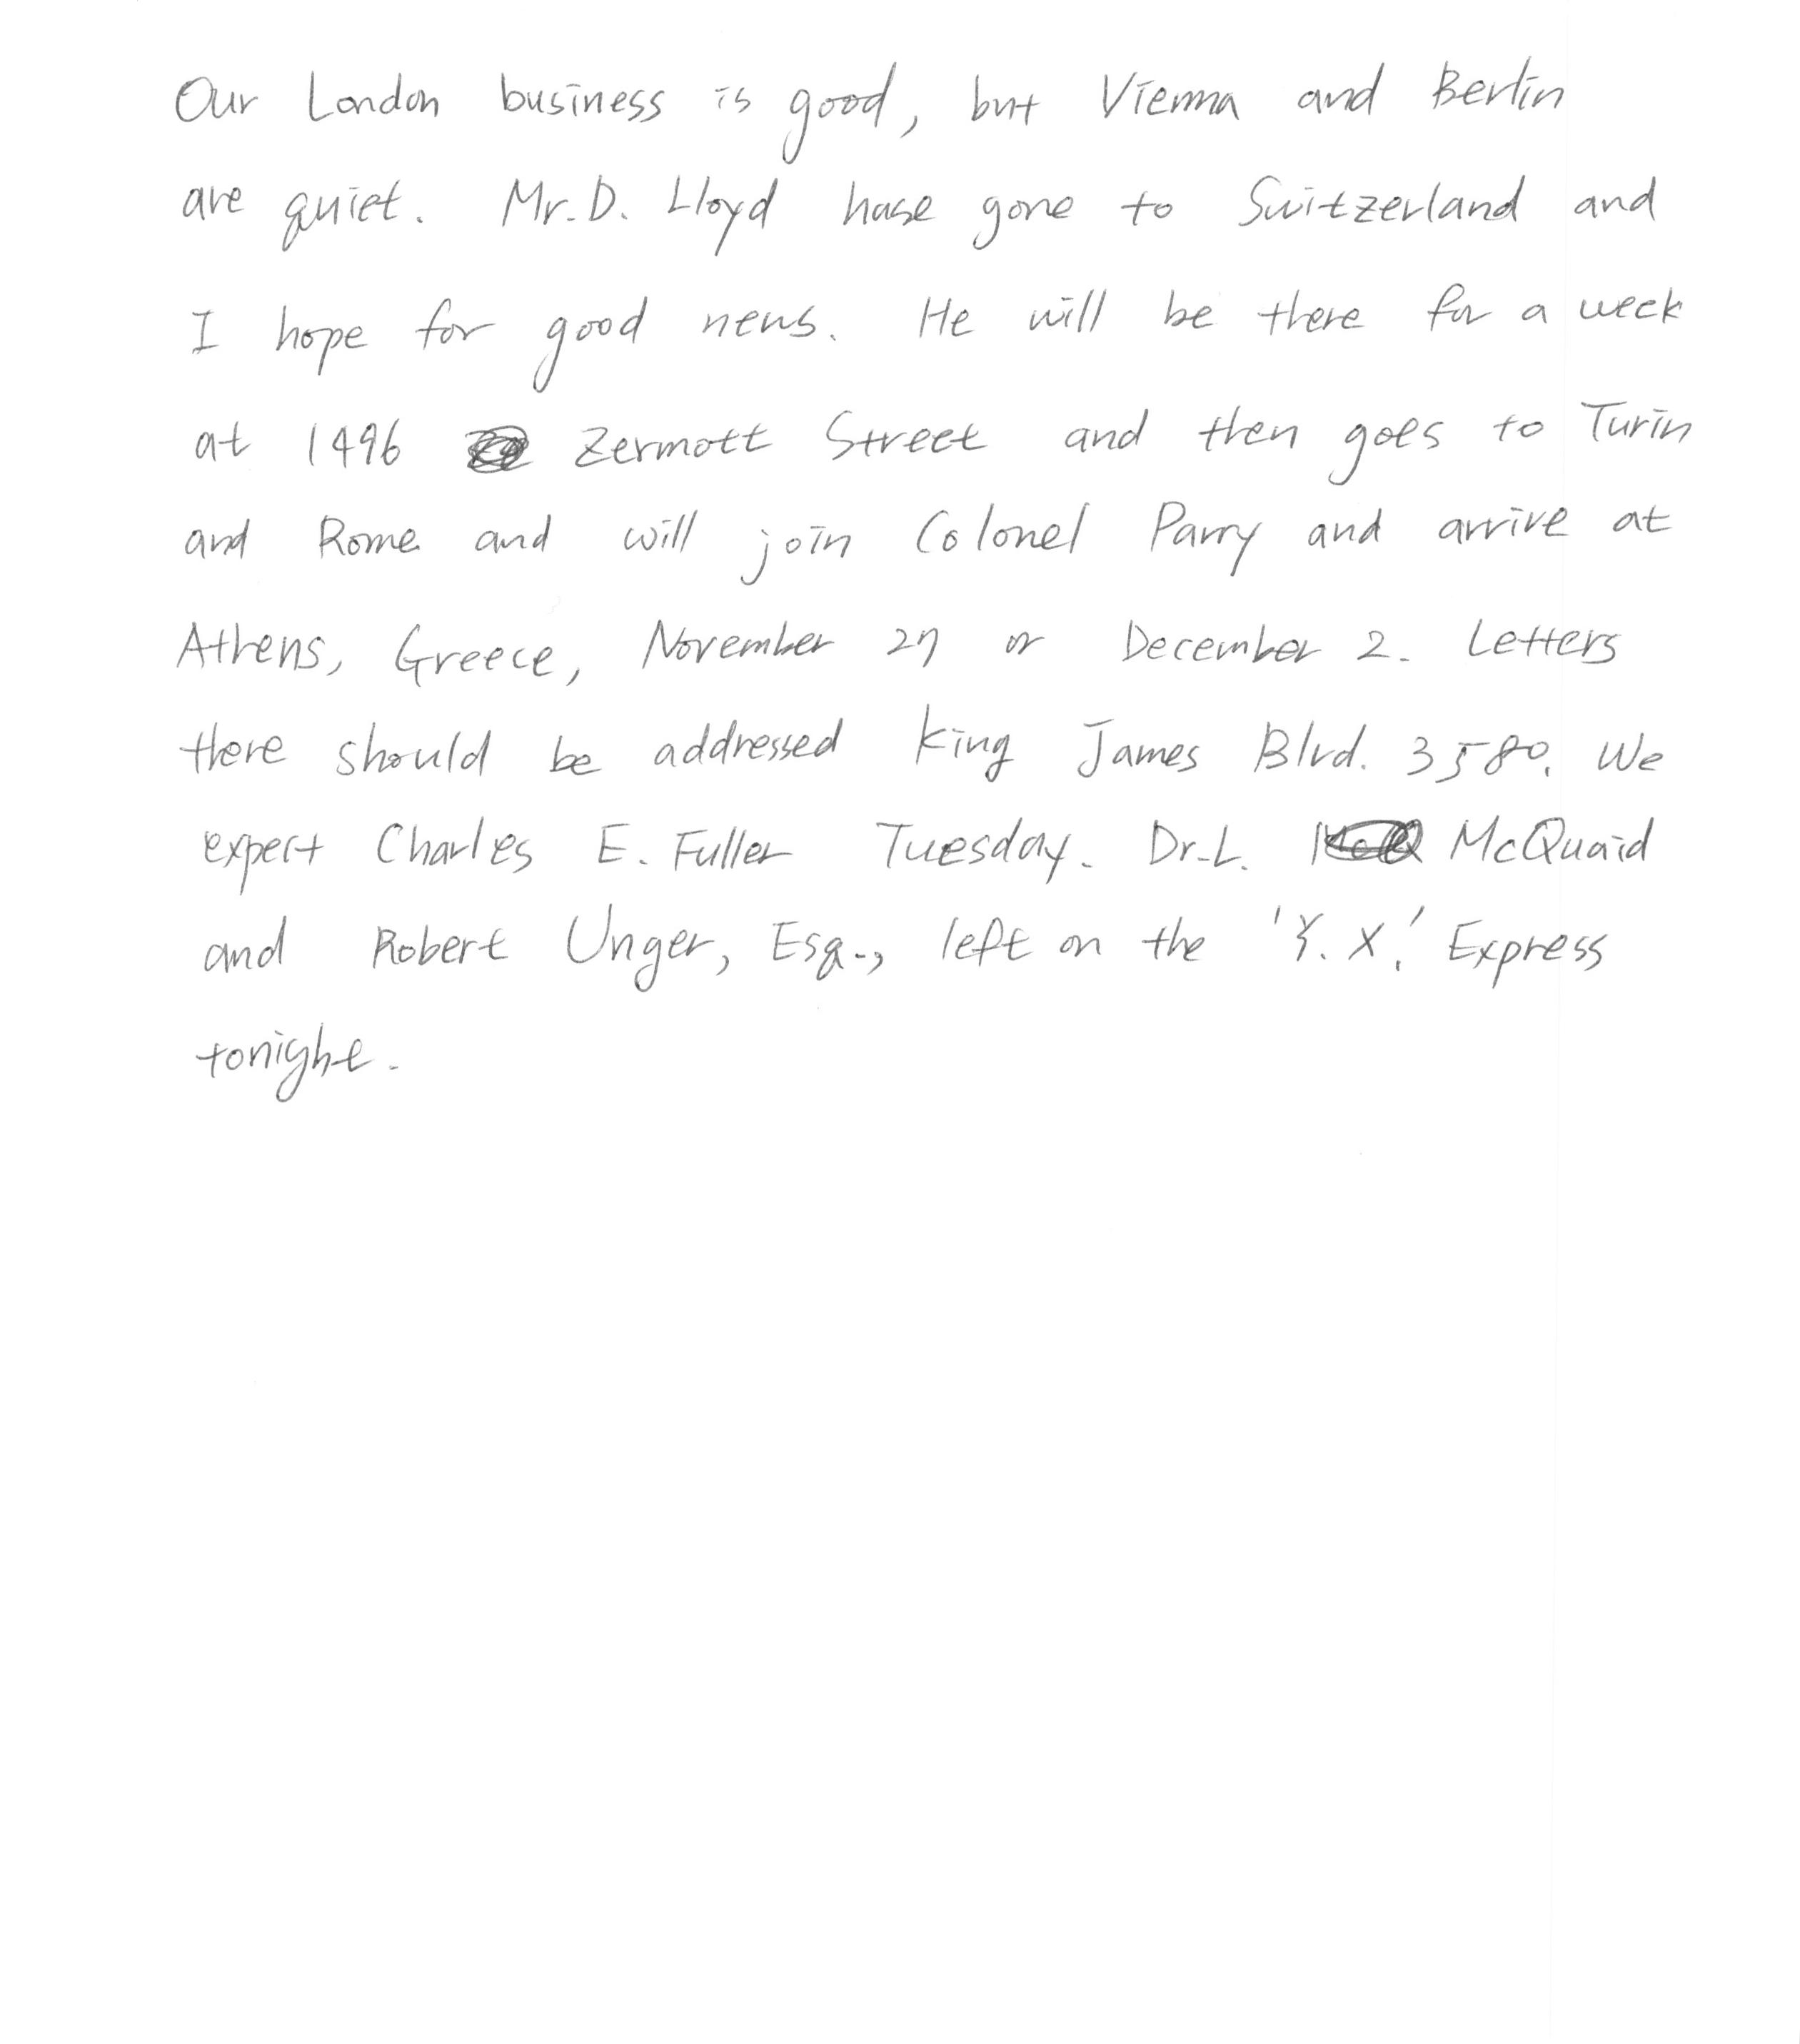 Our London business is good, but Vienna and Berlin
are quiet. Mr. D. Lloyd hase gone to Switzerland and
I hope for good news. He will be there for a week
at 1496 Zermott Street and then goes to Turin
and Rome and will join Colonel Parry and arrive at
Athens, Greece, November 27 or December 2. Letters
there should be addressed King James Blvd. 3580. We
expect Charles E. Fuller Tuesday. Dr. L. McQuaid
and Robert Unger, Esq., left on the 'Y. X.' Express
tonight.